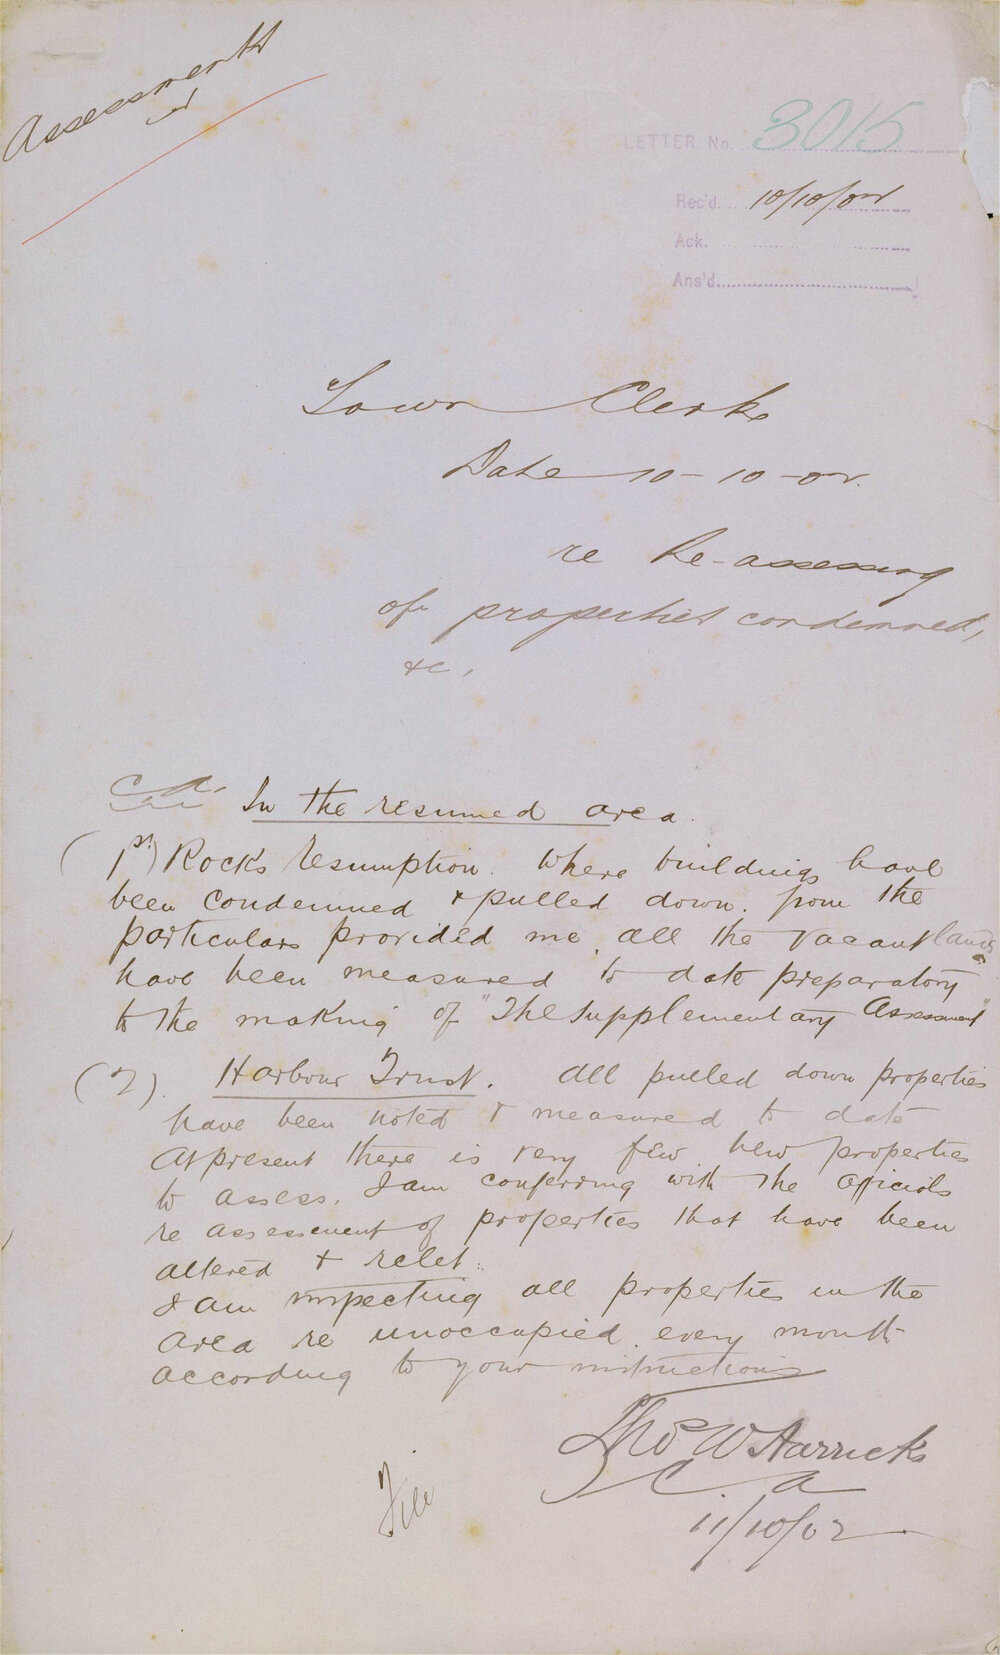 Assessments
LETTER No. 3015
Rec'd 10/10/02
Ack.
Ans'd.
Town Clerk
Date 10-10-02.
re Re-assessing
of properties condemned,
&c.
C. A.
In the resumed area.
(1st) Rocks resumption. Where buildings have
been condemned & pulled down. from the
particulars provided me, all the vacant lands
have been measured to date preparatory
to the making of "The Supplementary Assessment"
(2). Harbour Trust. All pulled down properties
have been noted & measured to date
At present there is very few new properties
to assess. I am conferring with the officials
re assessment of properties that have been
altered & relet.
I am inspecting all properties in the
area re unoccupied every month
according to your instructions
Thos W Harricks
C. A
11/10/02
File